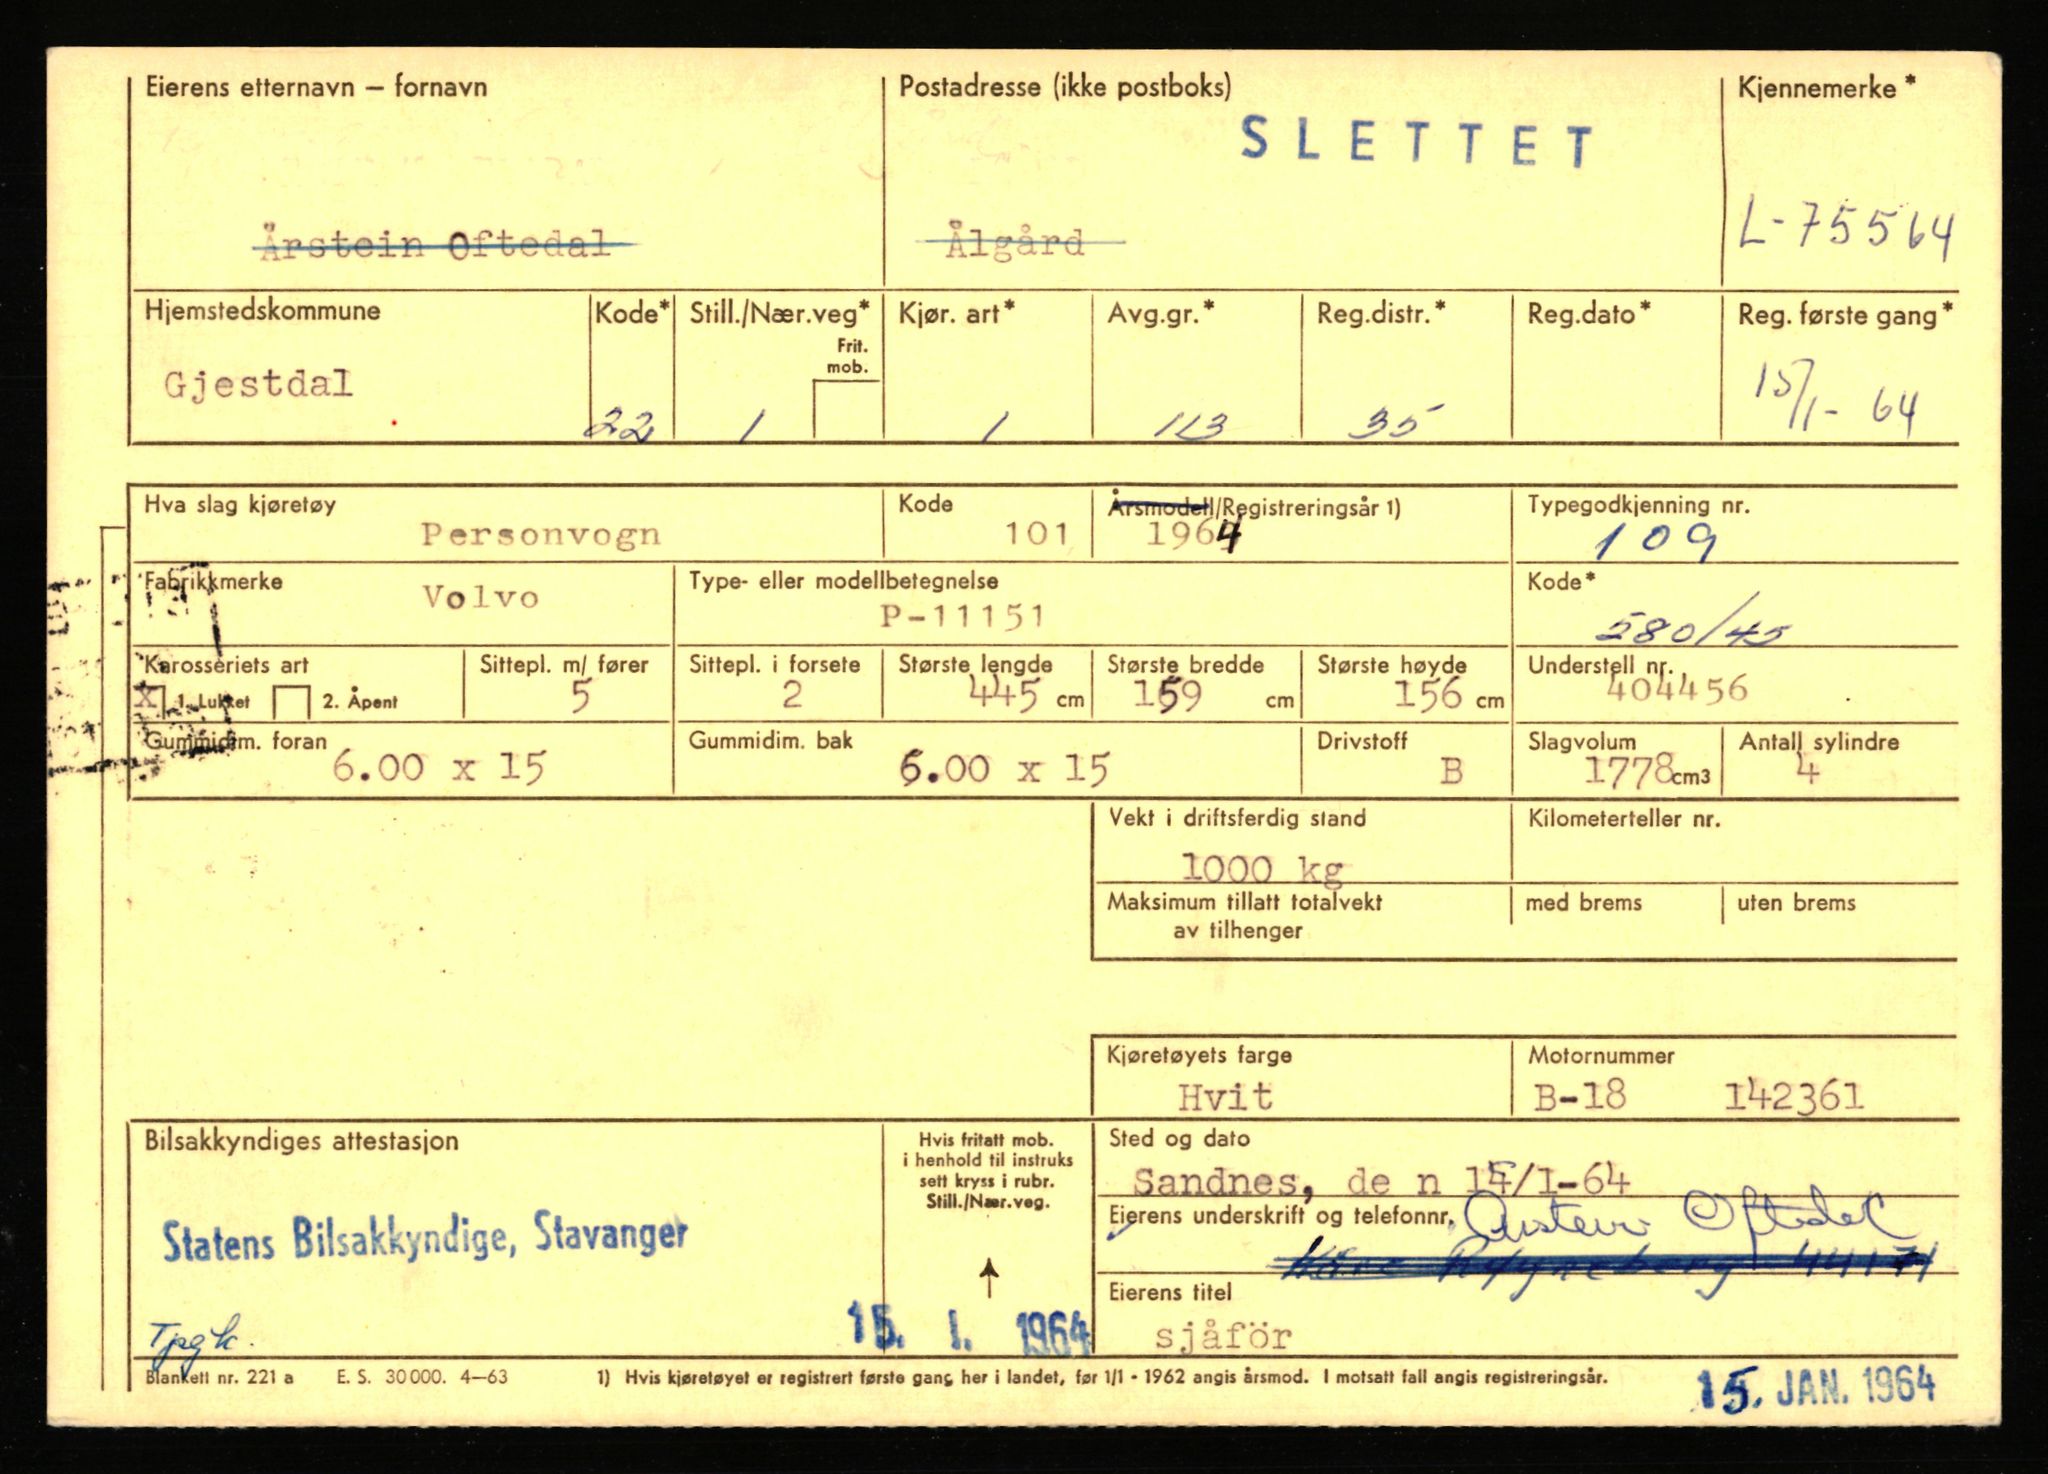 Eierens etternavn – fornavn
Postadresse (ikke postboks)
Kjennemerke*
SLETTET
Årstein Oftedal
Ålgård
L-75564
Hjemstedskommune
Kode*
Still./Nær.veg*
Frit. mob.
Kjør. art*
Avg.gr.*
Reg.distr.*
Reg.dato*
Reg. første gang*
Gjestdal
22
1
1
113
35
15/1-64
Hva slag kjøretøy
Personvogn
Kode
101
Årsmodell/Registreringsår 1)
1964
Typegodkjenning nr.
109
Fabrikkmerke
Volvo
Type- eller modellbetegnelse
P-11151
Kode*
580/45
Karosseriets art
X 1. Lukket
2. Åpent
Sittepl. m/ fører
5
Sittepl. i forsete
2
Største lengde
445 cm
Største bredde
159 cm
Største høyde
156 cm
Understell nr.
404456
Gummidim. foran
6.00 x 15
Gummidim. bak
6.00 x 15
Drivstoff
B
Slagvolum
1778 cm3
Antall sylindre
4
Vekt i driftsferdig stand
1000 kg
Kilometerteller nr.
Maksimum tillatt totalvekt
av tilhenger
med brems
uten brems
Kjøretøyets farge
Hvit
Motornummer
B-18 142361
Bilsakkyndiges attestasjon
Statens Bilsakkyndige, Stavanger
Hvis fritatt mob.
i henhold til instruks
sett kryss i rubr.
Still./Nær.veg.
15. 1. 1964
Sted og dato
Sandnes, de n 15/1-64
Eierens underskrift og telefonnr.
Årstein Oftedal
Eierens titel
sjåför
Blankett nr. 221 a E. S. 30 000. 4–63
1) Hvis kjøretøyet er registrert første gang her i landet, før 1/1 - 1962 angis årsmod. I motsatt fall angis registreringsår.
15. JAN. 1964